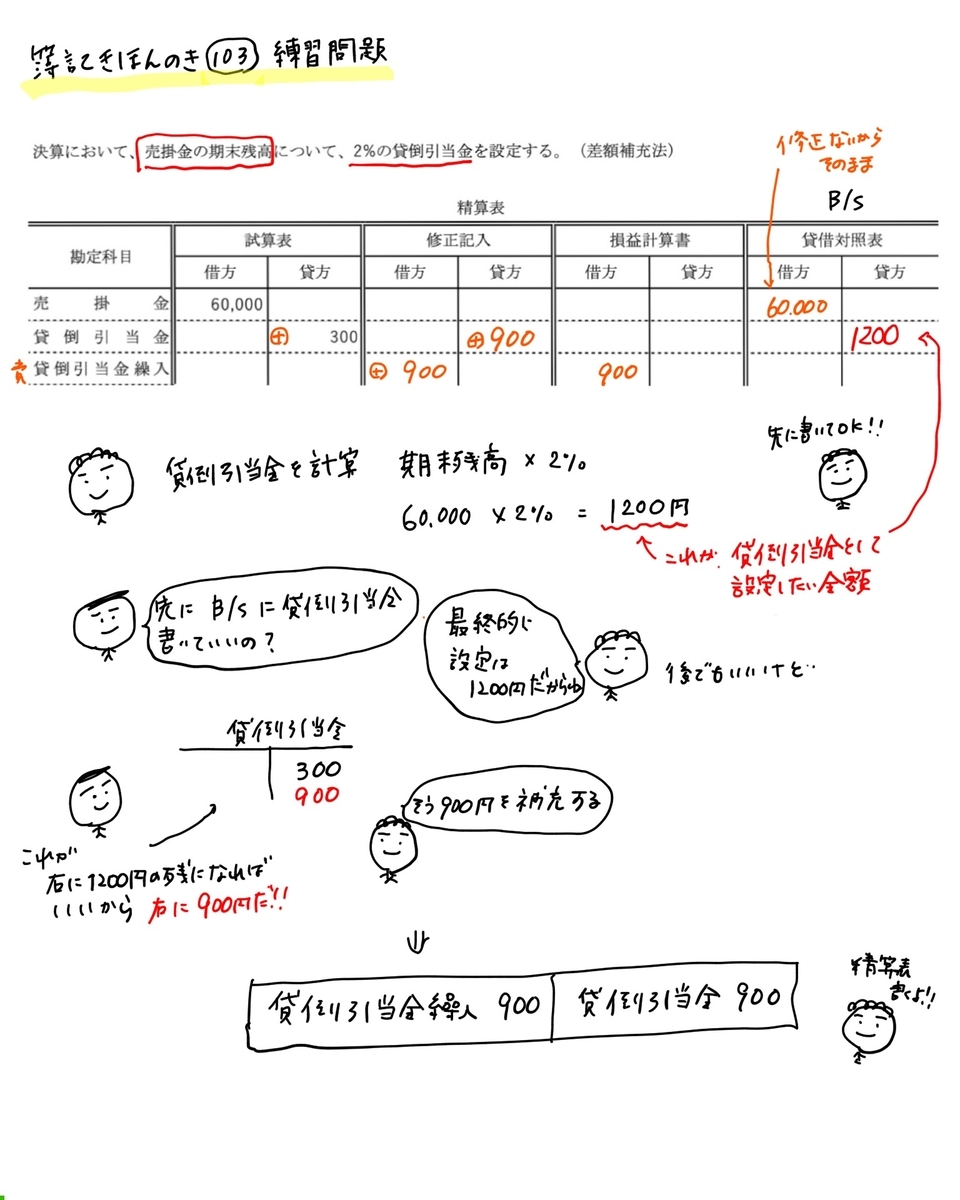 簿記きほんのき103 練習問題
決算において、売掛金の期末残高について、2%の貸倒引当金を設定する。（差額補充法）
修正ないから
そのまま
B/S
精算表
勘定科目 試算表 修正記入 損益計算書 貸借対照表
借方 貸方 借方 貸方 借方 貸方 借方 貸方
売掛金 60,000 60.000
貸倒引当金 ⊕ 300 ⊕900 1200
費 貸倒引当金繰入 ⊕ 900 900
先に書いてOK!!
貸倒引当金を計算 期末残高 × 2%
60.000 × 2% = 1200円
これが、貸倒引当金として
設定したい金額
先に B/Sに貸倒引当金
書いていいの？
最終的に
設定は
1200円だからね
後でもいいけど‥
貸倒引当金
300
900
そう900円を補充する
これが
右に1200円の残になれば
いいから 右に900円だ!!
⇓
貸倒引当金繰入 900 貸倒引当金 900
精算表
書くよ!!